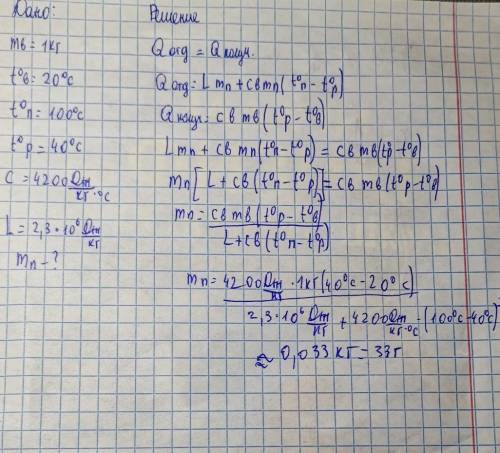 Дано:
mв = 1кг
t°в = 20°c
t°п = 100°c
t°р = 40°c
C = 4200 Дж/кг·°c
L = 2,3·10⁶ Дж/кг
mп - ?
Решение
Q отд = Q получ.
Q отд = L mп + cв mп (t°п - t°р)
Q получ = cв mв (t°р - t°в)
L mп + cв mп (t°п - t°р) = cв mв (t°р - t°в)
mп [L + cв (t°п - t°р)] = cв mв (t°р - t°в)
mп = cв mв (t°р - t°в)
L + cв (t°п - t°р)
mп = 4200 Дж/кг · 1кг (40°c - 20°c)
2,3·10⁶ Дж/кг + 4200 Дж/кг·°c · (100°c - 40°c)
≈ 0,033 кг = 33г